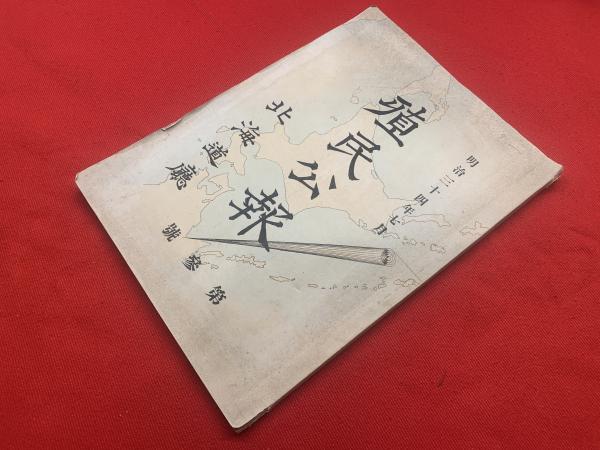 明治三十四年七月
殖民公報
北海道廳
第參號